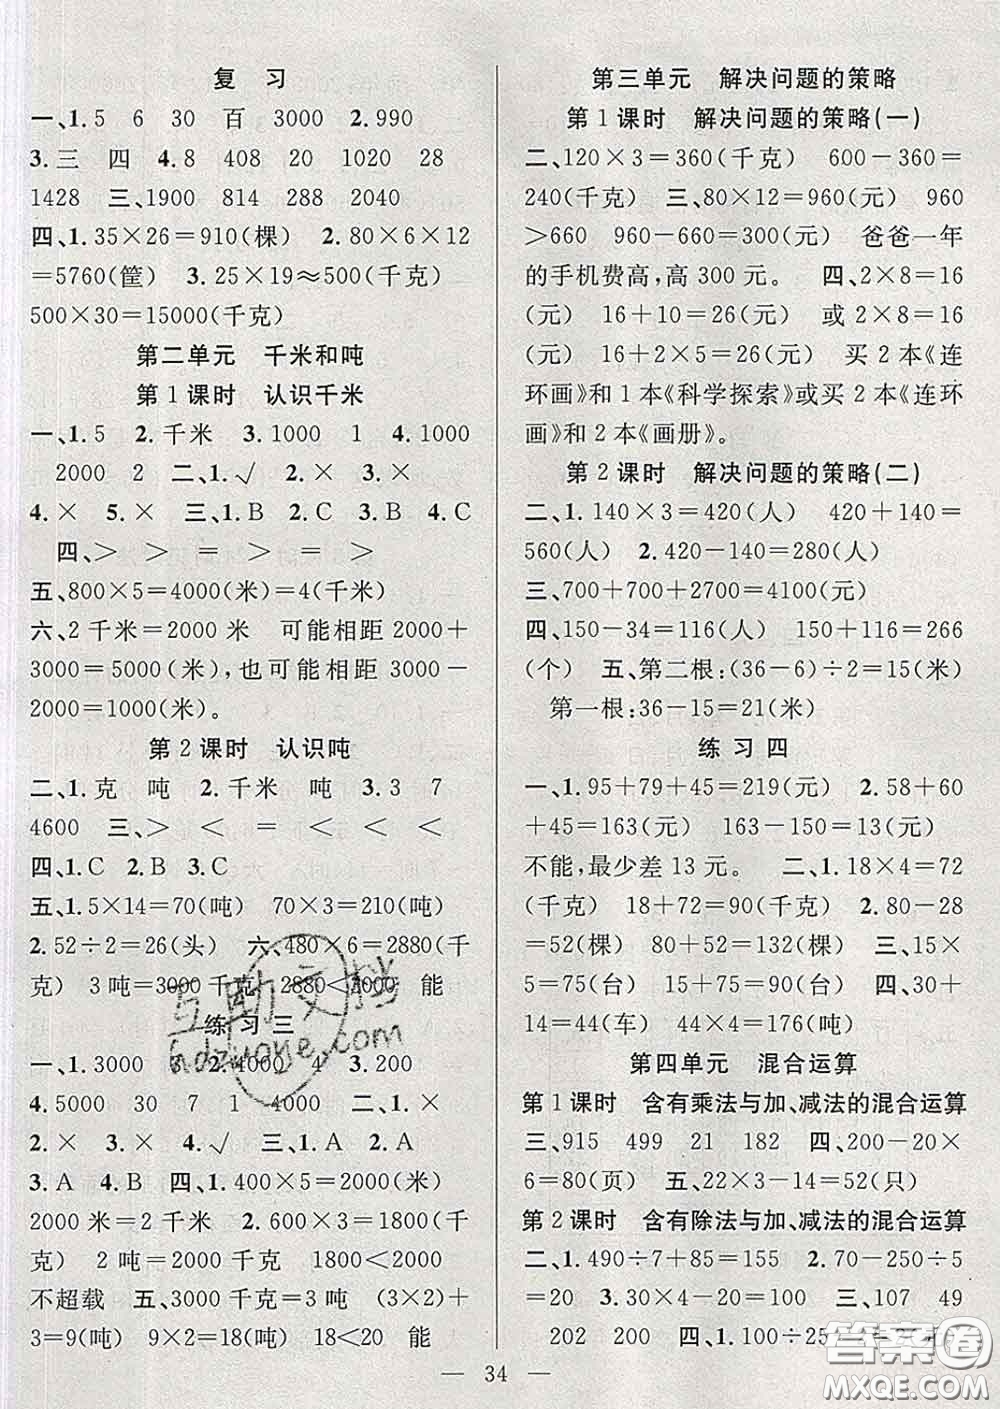 复 习
一、1.5 6 30 百 3000 2.990
3.三 四 4.8 408 20 1020 28
1428 三、1900 814 288 2040
四、1.35×26=910(棵) 2.80×6×12
=5760(筐) 3.25×19≈500(千克)
500×30=15000(千克)
第二单元 千米和吨
第1课时 认识千米
一、1.5 2.千米 3.1000 1 4.1000
2000 2 二、1.√ 2.× 3.×
4.× 5.× 三、1.B 2.C 3.B 4.C
四、> > = = >
五、800×5=4000(米)=4(千米)
六、2千米=2000米 可能相距2000+
3000=5000(米),也可能相距3000-
2000=1000(米)。
第2课时 认识吨
二、1.克 吨 2.千米 吨 3.3 7
4600 三、> < = < < <
四、1.C 2.B 3.C
五、1.5×14=70(吨) 70×3=210(吨)
2.52÷2=26(头) 六、480×6=2880(千
克) 3吨=3000千克 2880<3000 能
练习三
一、1.3000 3 2.4000 4 3.200
4.5000 30 7 1 4000 二、1.×
2.× 3.× 4.√ 三、1.A 2.A
3.A 4.B 四、1.400×5=2000(米)
2000米=2千米 2.600×3=1800(千
克) 2吨=2000千克 1800<2000
不超载 五、3000千克=3吨 (3×2)+
3=9(吨) 9×2=18(吨) 18<20 能
第三单元 解决问题的策略
第1课时 解决问题的策略(一)
二、120×3=360(千克) 600-360=
240(千克) 三、80×12=960(元) 960
>660 960-660=300(元) 爸爸一年
的手机费高,高300元。 四、2×8=16
(元) 16+10=26(元) 或2×8=16
(元) 16+2×5=26(元) 买2本《连
环画》和1本《科学探索》或买2本《连环
画》和2本《画册》。
第2课时 解决问题的策略(二)
二、1.140×3=420(人) 420+140=
560(人) 2.420-140=280(人)
三、700+700+2700=4100(元)
四、150-34=116(人) 150+116=266
(个) 五、第二根:(36-6)÷2=15(米)
第一根:36-15=21(米)
练习四
一、1.95+79+45=219(元) 2.58+60
+45=163(元) 163-150=13(元)
不能,最少差13元。 二、1.18×4=72
(千克) 18+72=90(千克) 2.80-28
=52(棵) 80+52=132(棵) 三、15×
5=75(台) 75+15=90(台) 四、30+
14=44(车) 44×4=176(吨)
第四单元 混合运算
第1课时 含有乘法与加、减法的混合运算
三、915 499 21 182 四、200-20×
6=80(页) 五、22×3-14=52(只)
第2课时 含有除法与加、减法的混合运算
二、1.490÷7+85=155 2.70-250÷5
=20 3.30×4-20=100 三、107 49
202 200 四、1.100÷25
— 34 —
互助文档
hdzuoye.com
答案圈
MXQE.COM